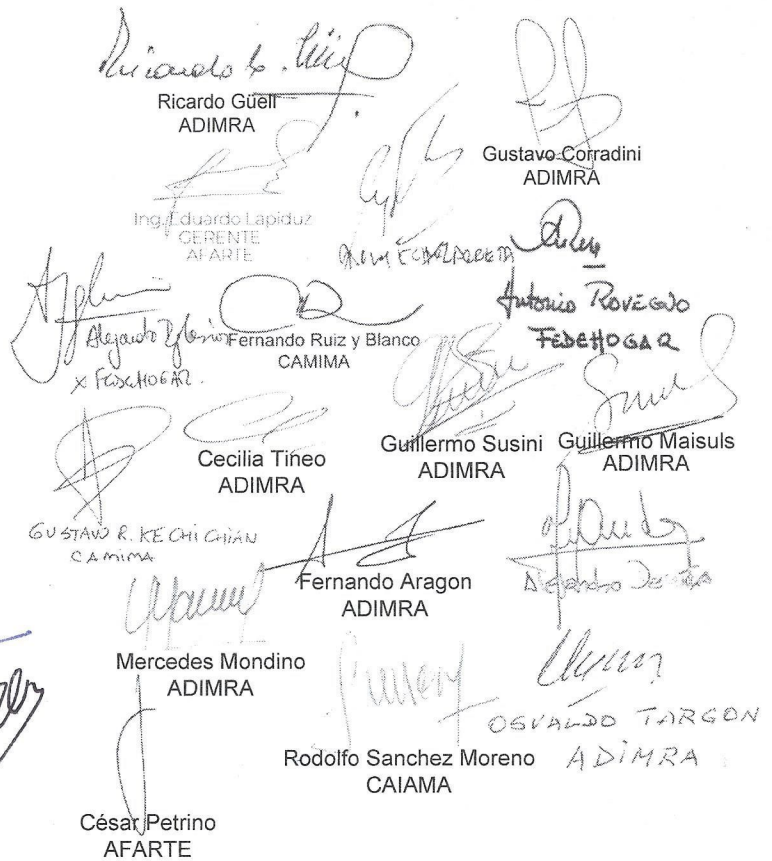 Ricardo Güell
ADIMRA
Gustavo Corradini
ADIMRA
Ing. Eduardo Lapiduz
GERENTE
AFARTE
Antonio ROVEGNO
FEDEHOGAR
Alejandro Iglesias
x FEDEHOGAR.
Fernando Ruiz y Blanco
CAMIMA
Cecilia Tineo
ADIMRA
Guillermo Susini
ADIMRA
Guillermo Maisuls
ADIMRA
GUSTAVO R. KECHICHIAN
CAMIMA
Fernando Aragon
ADIMRA
Alejandro
Mercedes Mondino
ADIMRA
OSVALDO TARGON
ADIMRA
Rodolfo Sanchez Moreno
CAIAMA
César Petrino
AFARTE